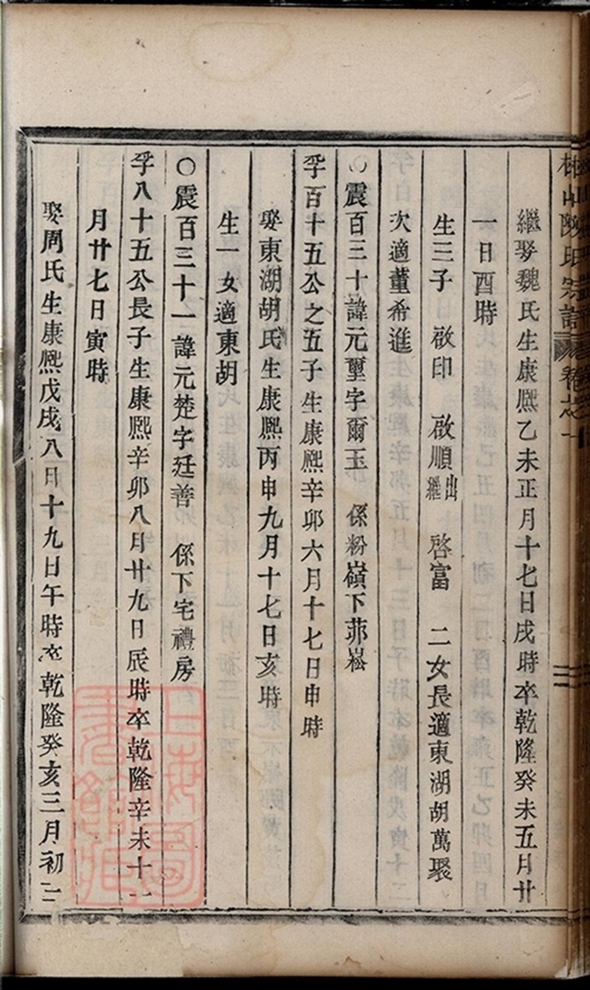 陳氏宗譜 卷之十
繼娶魏氏生康熙乙未正月十七日戌時卒乾隆癸未五月廿
一日酉時
生三子 啟印 啟順出繼 啓富 二女長適東湖胡萬聚
次適董希進
〇震百三十諱元璽字爾玉 係粉嶺下菲崧
孚百十五公之五子生康熙辛卯六月十七日申時
娶東湖胡氏生康熙丙申九月十七日亥時
生一女適東胡
〇震百三十一諱元楚字廷善 係下宅禮房
孚八十五公長子生康熙辛卯八月廿九日辰時卒乾隆辛未十一
月廿七日寅時
娶周氏生康熙戊戌八日十九日午時卒乾隆癸亥三月初二